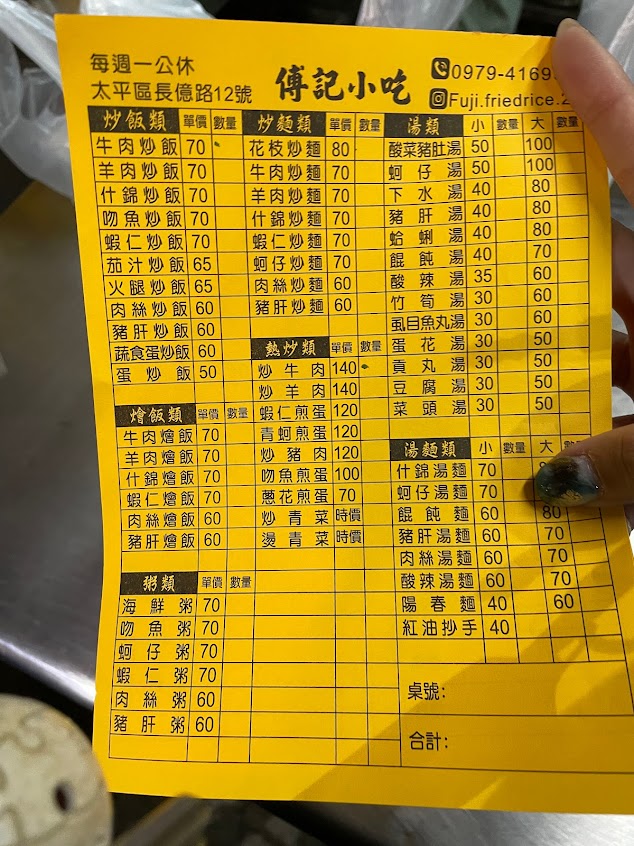 每週一公休
太平區長億路12號
傅記小吃
0979-4169
Fuji.friedrice.2
炒飯類 單價 數量
牛肉炒飯 70
羊肉炒飯 70
什錦炒飯 70
吻魚炒飯 70
蝦仁炒飯 70
茄汁炒飯 65
火腿炒飯 65
肉絲炒飯 60
豬肝炒飯 60
蔬食蛋炒飯 60
蛋炒飯 50
燴飯類 單價 數量
牛肉燴飯 70
羊肉燴飯 70
什錦燴飯 70
蝦仁燴飯 70
肉絲燴飯 60
豬肝燴飯 60
粥類 單價 數量
海鮮粥 70
吻魚粥 70
蚵仔粥 70
蝦仁粥 70
肉絲粥 60
豬肝粥 60
炒麵類 單價 數量
花枝炒麵 80
牛肉炒麵 70
羊肉炒麵 70
什錦炒麵 70
蝦仁炒麵 70
蚵仔炒麵 70
肉絲炒麵 60
豬肝炒麵 60
熱炒類 單價 數量
炒牛肉 140
炒羊肉 140
蝦仁煎蛋 120
青蚵煎蛋 120
炒豬肉 120
吻魚煎蛋 100
蔥花煎蛋 70
炒青菜 時價
燙青菜 時價
湯類 小 數量 大 數量
酸菜豬肚湯 50 100
蚵仔湯 50 100
下水湯 40 80
豬肝湯 40 80
蛤蜊湯 40 80
餛飩湯 40 70
酸辣湯 35 60
竹筍湯 30 60
虱目魚丸湯 30 60
蛋花湯 30 50
貢丸湯 30 50
豆腐湯 30 50
菜頭湯 30 50
湯麵類 小 數量 大 數量
什錦湯麵 70
蚵仔湯麵 70
餛飩麵 60 80
豬肝湯麵 60 70
肉絲湯麵 60 70
酸辣湯麵 60 70
陽春麵 40 60
紅油抄手 40
桌號:
合計: